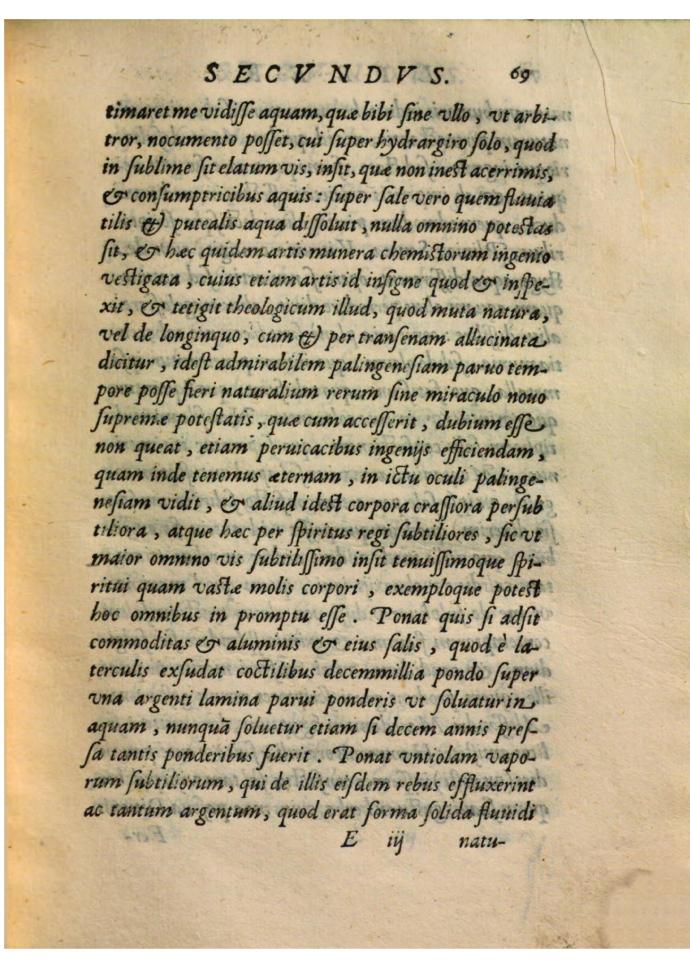 SECVNDVS. 69
timaret me vidiſſe aquam, quæ bibi ſine vllo, vt arbi-
tror, nocumento poſſet, cui ſuper hydrargiro ſolo, quod
in ſublime ſit elatum vis, inſit, quæ non ineſt acerrimis,
& conſumptricibus aquis: ſuper ſale vero quem fluuia
tilis & putealis aqua diſſoluit, nulla omnino poteſtas
ſit, & hæc quidem artis munera chemiſtorum ingenio
veſtigata, cuius etiam artis id inſigne quod & inſpe-
xit, & tetigit theologicum illud, quod muta natura,
vel de longinquo, cum & per tranſenam allucinata
dicitur, ideſt admirabilem palingeneſiam paruo tem-
pore poſſe fieri naturalium rerum ſine miraculo nouo
ſupremæ poteſtatis, quæ cum acceſſerit, dubium eſſe
non queat, etiam peruicacibus ingenijs efficiendam,
quam inde tenemus æternam, in ictu oculi palinge-
neſiam vidit, & aliud ideſt corpora craſſiora per ſub
tiliora, atque hæc per ſpiritus regi ſubtiliores, ſic vt
maior omnino vis ſubtiliſſimo inſit tenuiſſimoque ſpi-
ritui quam vaſtæ molis corpori, exemploque poteſt
hoc omnibus in promptu eſſe. Ponat quis ſi adſit
commoditas & aluminis & eius ſalis, quod è la-
terculis exſudat coctilibus decemmillia pondo ſuper
vna argenti lamina parui ponderis vt ſoluatur in
aquam, nunquã ſoluetur etiam ſi decem annis preſ-
ſa tantis ponderibus fuerit. Ponat vntiolam vapo-
rum ſubtiliorum, qui de illis eiſdem rebus effluxerint
ac tantum argentum, quod erat forma ſolida fluuidi
E iij natu-